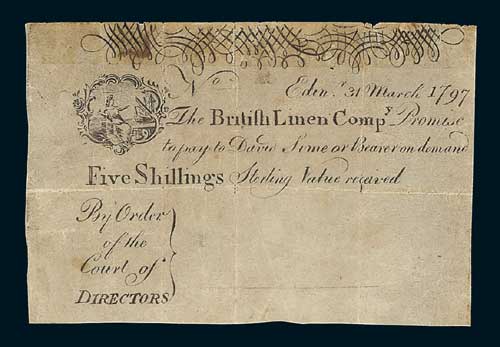 No. Edinr. 31 March 1797
The British Linen Compy. Promise
to pay to David Sime or Bearer on demand
Five Shillings Sterling Value received
By Order
of the
Court of
DIRECTORS